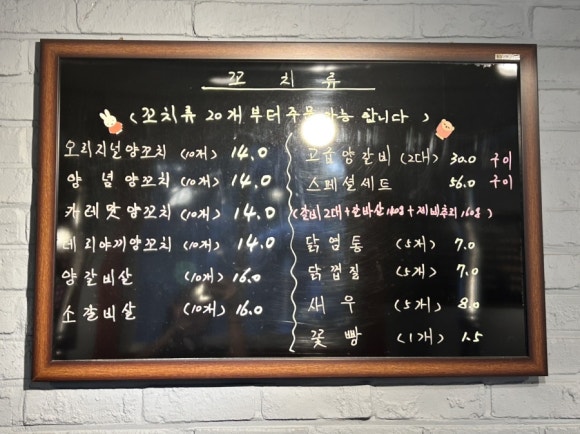 꼬치류
( 꼬치류 20개부터 주문가능 합니다 )
오리지널양꼬치 (10개) 14.0
양념양꼬치 (10개) 14.0
카레맛양꼬치 (10개) 14.0
데리야끼양꼬치 (10개) 14.0
양갈비살 (10개) 16.0
소갈비살 (10개) 16.0
고급양갈비 (2대) 30.0 구이
스페셜세트 56.0 구이
(갈비2대+갈비살160g+제비추리160g)
닭염통 (5개) 7.0
닭껍질 (5개) 7.0
새우 (5개) 8.0
꽃빵 (1개) 1.5